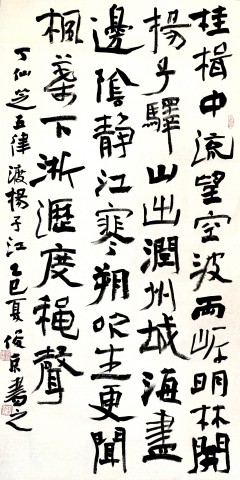 桂楫中流望空波兩畔明林開
揚子驛山出潤州城海盡
邊陰靜江寒朔吹生更聞
楓葉下淅瀝度穐聲
丁仙芝五律渡揚子江乙巳夏俊京書之